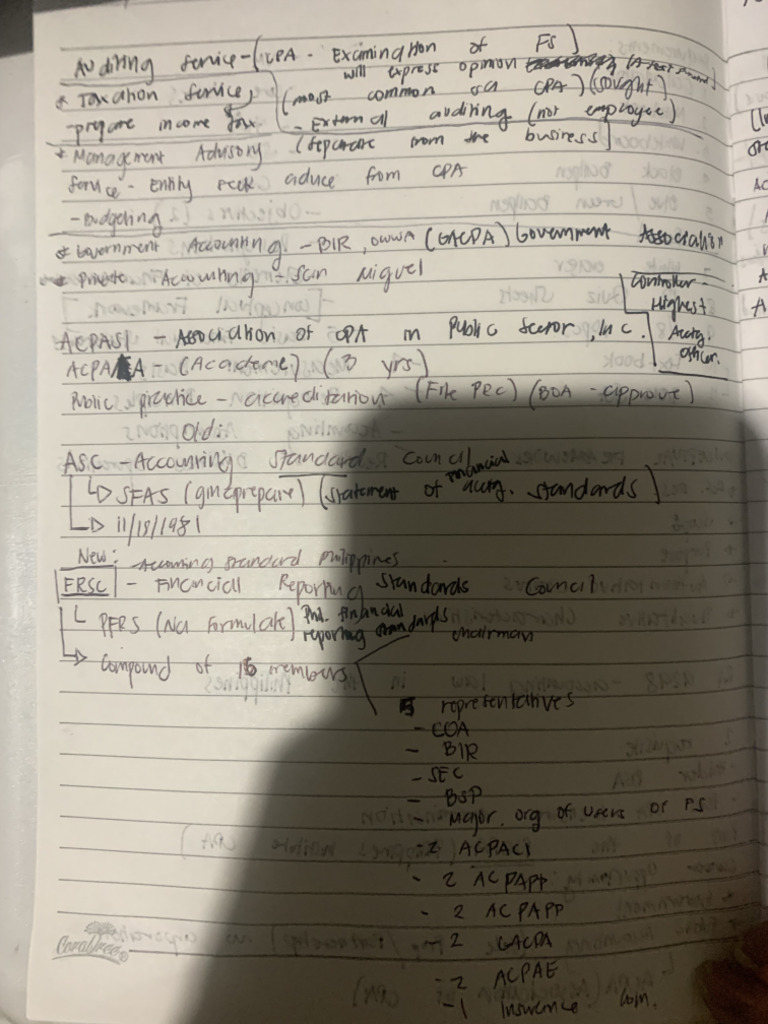 Auditing Service - (CPA - Examination of FS)
will express opinion
* Taxation Service (most common CPA) (sought)
- prepare income tax - External auditing (not employee)
* Management Advisory (separate from the business)
Service - Entity seek advice from CPA
- Budgeting
* Government Accounting - BIR, OWWA (GACPA) Government Association
* Private Accounting - San Miguel
Controller -
Highest
Acctg.
Officer.
ACPASI - Association of CPA in Public Sector, Inc.
(Academe) (3 yrs)
Public practice - accreditation (File PRC) (BOA - approve)
Old:
ASC - Accounting Standard Council
SFAS (Statement of Financial acctg. standards)
11/18/1981
New: Accounting standard Philippines
FRSC - Financial Reporting Standards Council
PFRS (Na Formulate) Phil. Financial
reporting standards
chairman
Compound of 16 members
representatives
- COA
- BIR
- SEC
- BSP
- Major org of users of FS
- 2 ACPACI
- 2 ACPAPP
- 2 ACPAPP
- 2 GACPA
- 2 ACPAE
- 1 Insurance com.
CoralTree